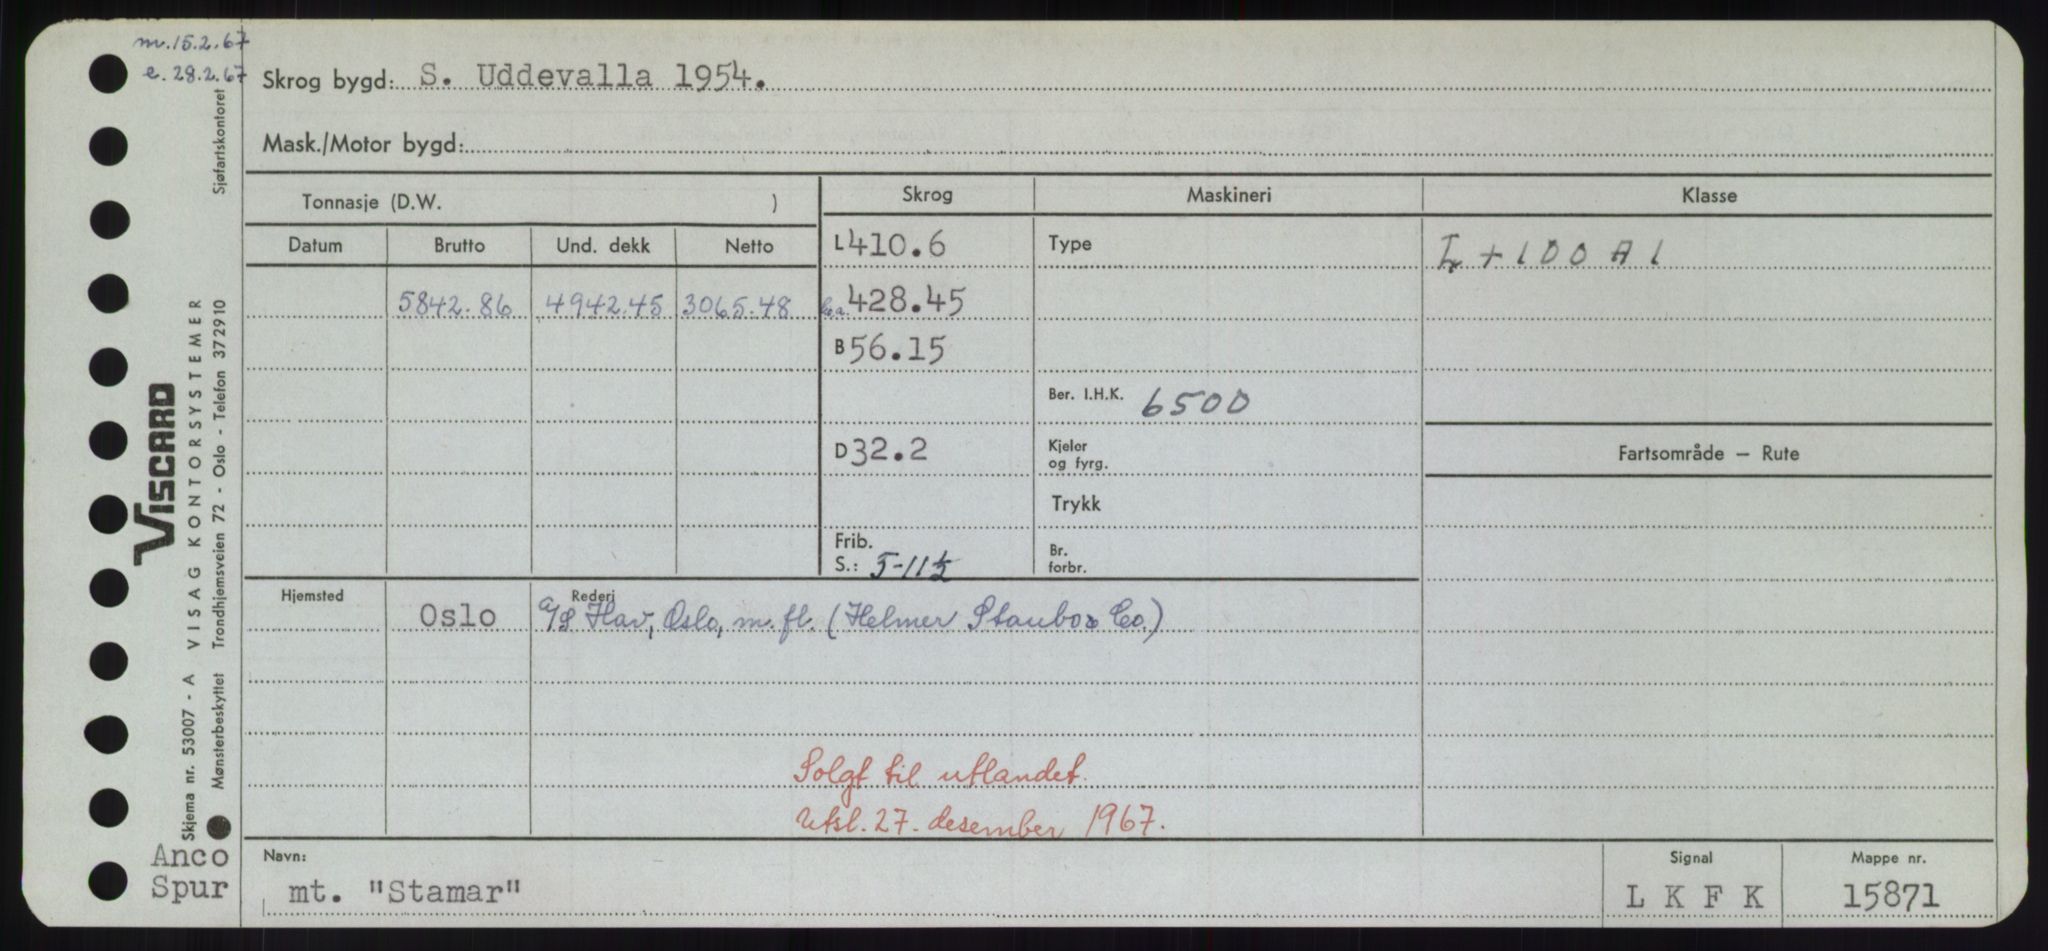 m. 15.2.67
e. 28.2.67
Skrog bygd: S. Uddevalla 1954.
Mask./Motor bygd:
Tonnasje (D.W. )
Skrog
Maskineri
Klasse
Datum Brutto Und. dekk Netto
L 410.6
Type
+ 100 A 1
5842.86 4942.45 3065.48
428.45
B 56.15
Ber. I.H.K. 6500
D 32.2
Kjeler
og fyrg.
Fartsområde — Rute
Trykk
Frib.
S.: 5-11½
Br.
forbr.
Hjemsted Oslo
Rederi
A/S Hav, Oslo, m. fl. (Helmer Staubo & Co.)
Solgt til utlandet.
Utsl. 27. desember 1967.
Navn:
mt. "Stamar"
Signal
L K F K
Mappe nr.
15871
Anco
Spur
VISCARD
Skjema nr. 53007 - A VISAG KONTORSYSTEMER
Mønsterbeskyttet Trondhjemsveien 72 - Oslo - Telefon 372910 Sjøfartskontoret